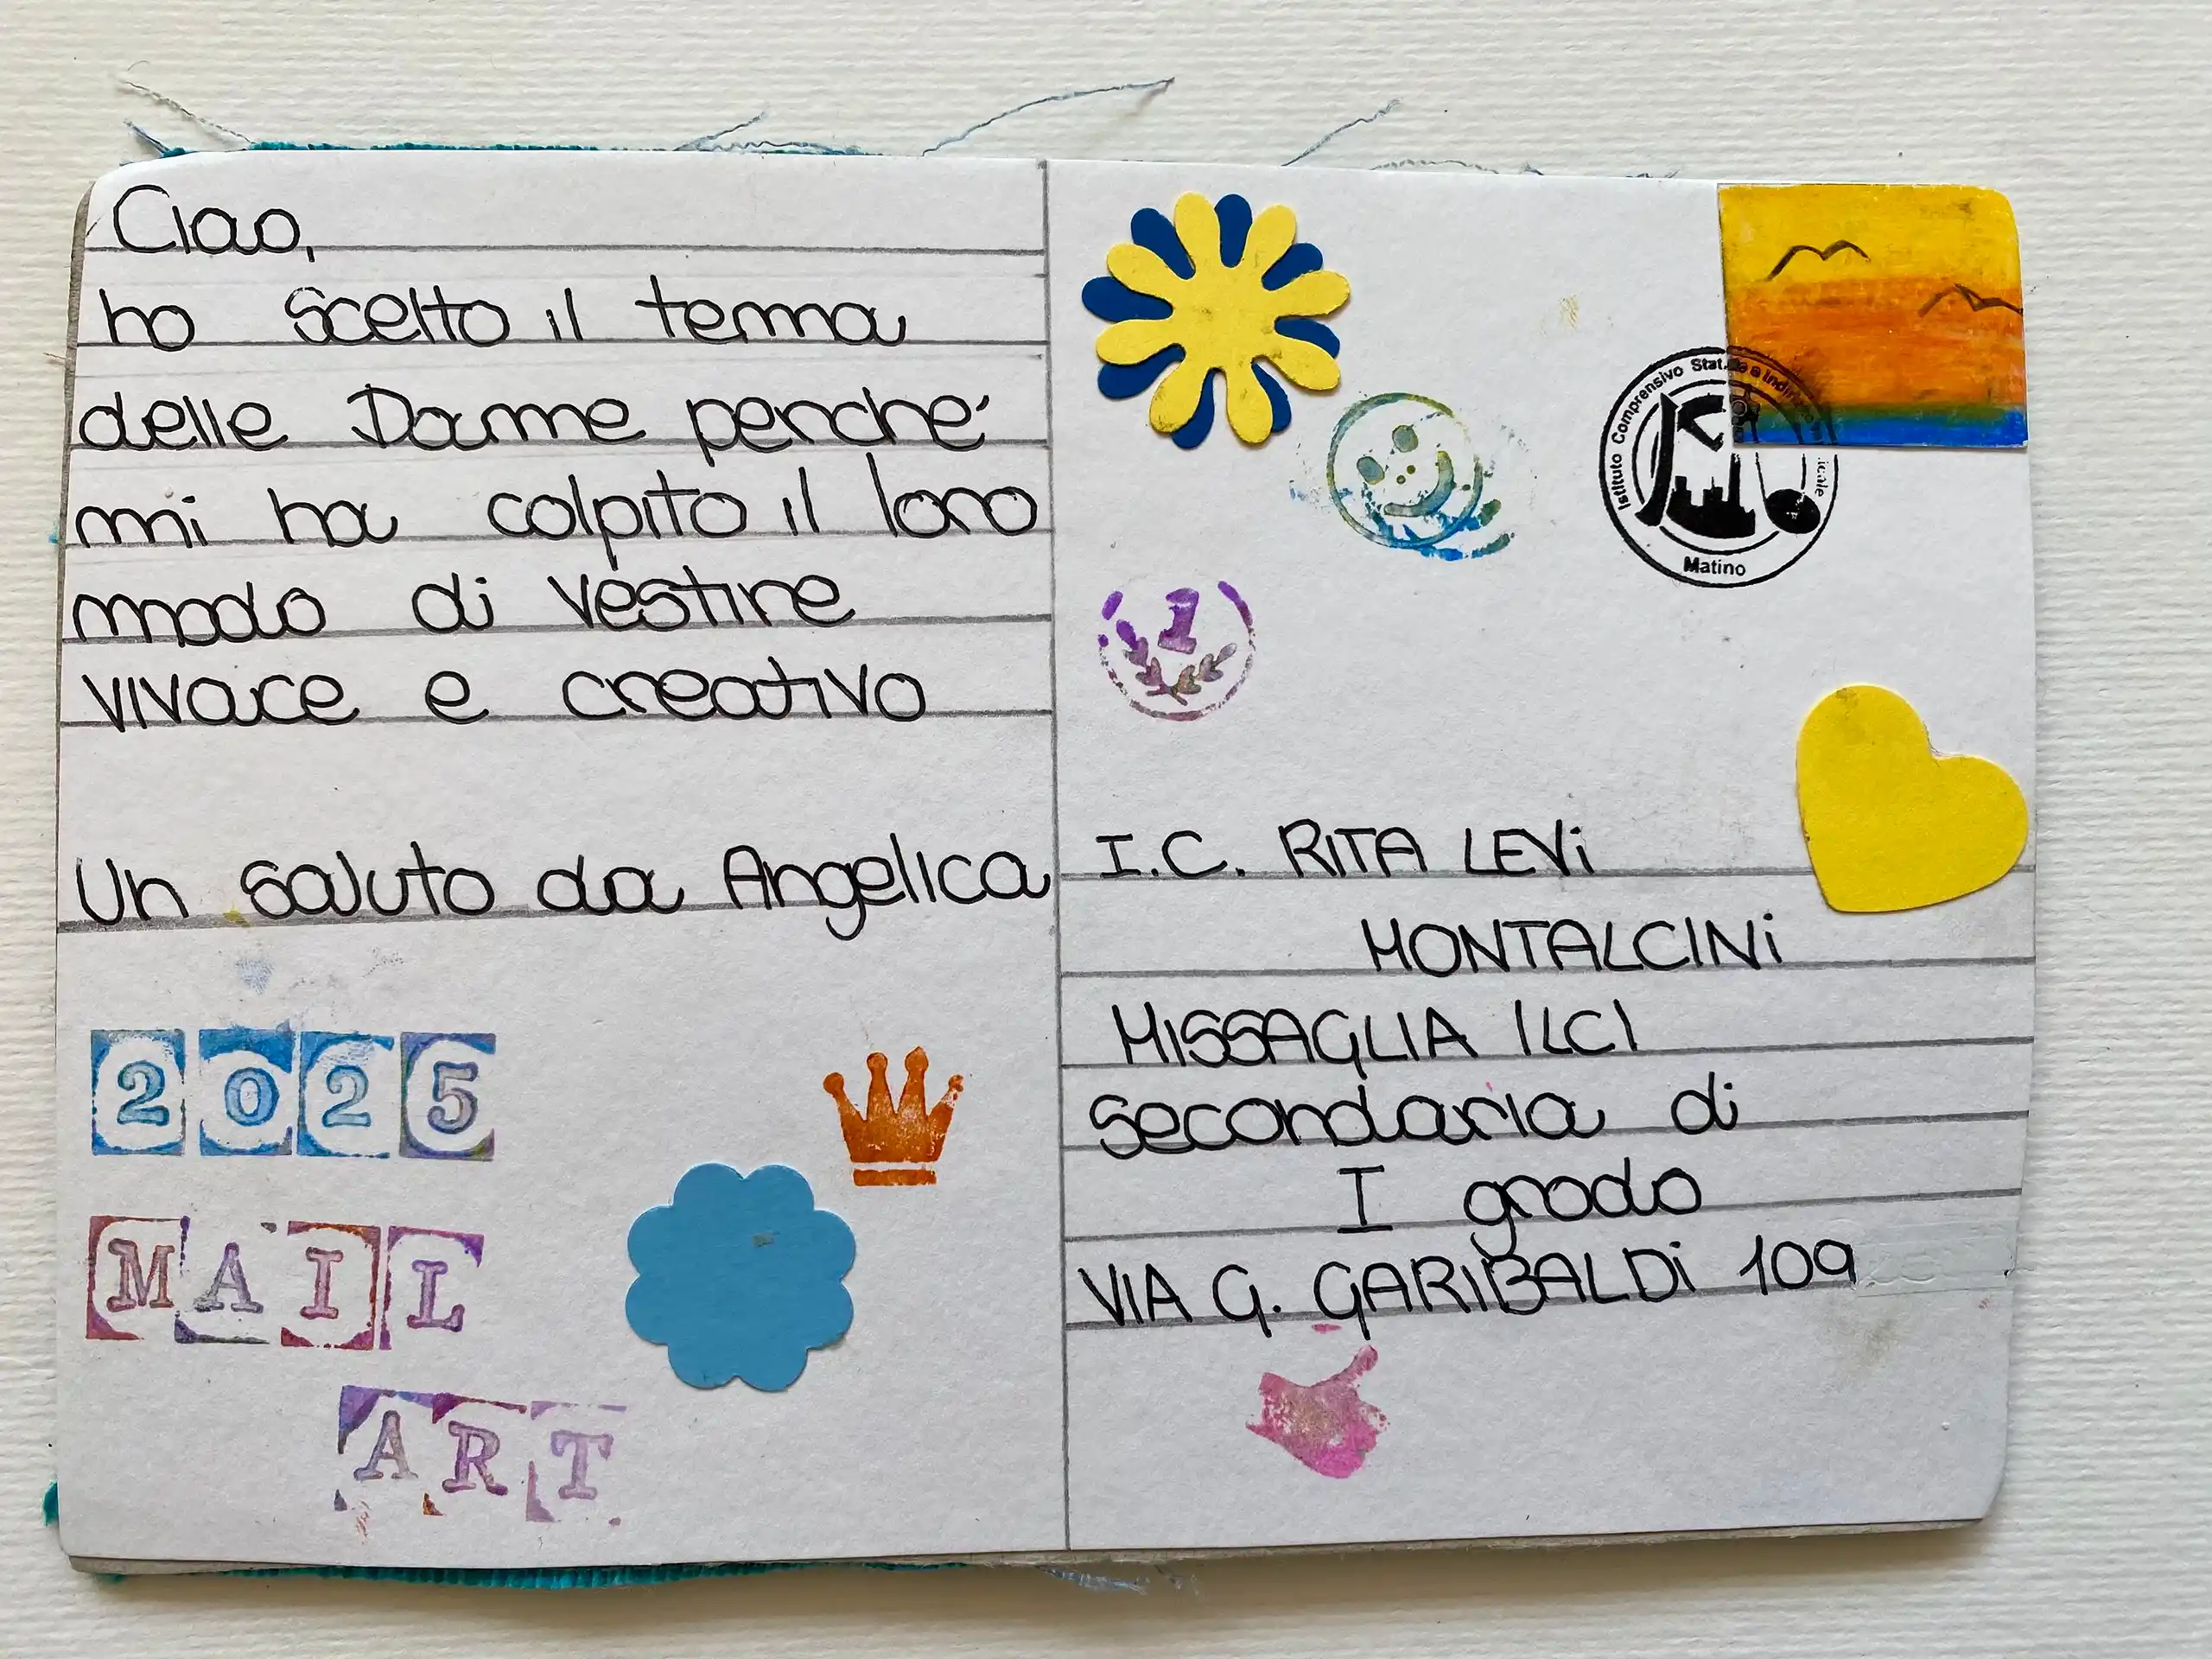 Ciao,
ho scelto il tema
delle Dame perché
mi ha colpito il loro
modo di vestire
vivace e creativo
Un saluto da Angelica
2025
MAIL
ART
1
Istituto Comprensivo Statale a Indirizzo Musicale
Matino
I.C. RITA LEVi
MONTALCINi
MISSAGLIA (LC)
secondaria di
I grado
VIA G. GARIBALDi 109